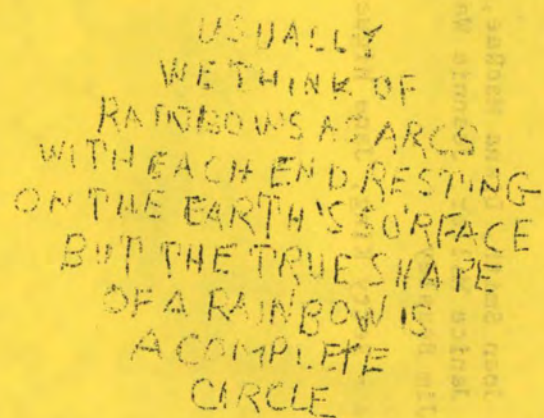 USUALLY
WE THINK OF
RAINBOWS AS ARCS
WITH EACH END RESTING
ON THE EARTH'S SURFACE
BUT THE TRUE SHAPE
OF A RAINBOW IS
A COMPLETE
CIRCLE